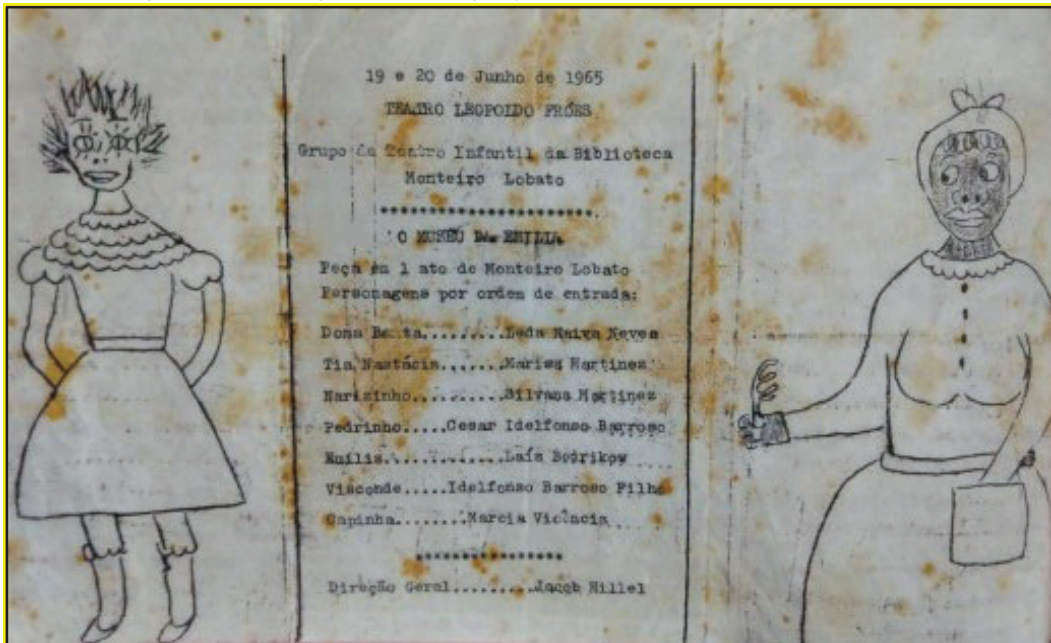 19 e 20 de Junho de 1965
TEATRO LEOPOLDO FRÓES
Grupo de Teatro Infantil da Biblioteca
Monteiro Lobato
**********************
O MUSEU DA EMILIA
Peça em 1 ato de Monteiro Lobato
Personagens por ordem de entrada:
Dona Benta.........Leda Neves
Tia Nastácia.......Marisa Martinez
Narizinho..........Silvana Martinez
Pedrinho.....Cesar Idelfonso Barroso
Emilia.............Laís Bedrikow
Visconde.....Idelfonso Barroso Filho
Capinha........Marcia Vicência
****************
Direção Geral.........Jacob Hillel